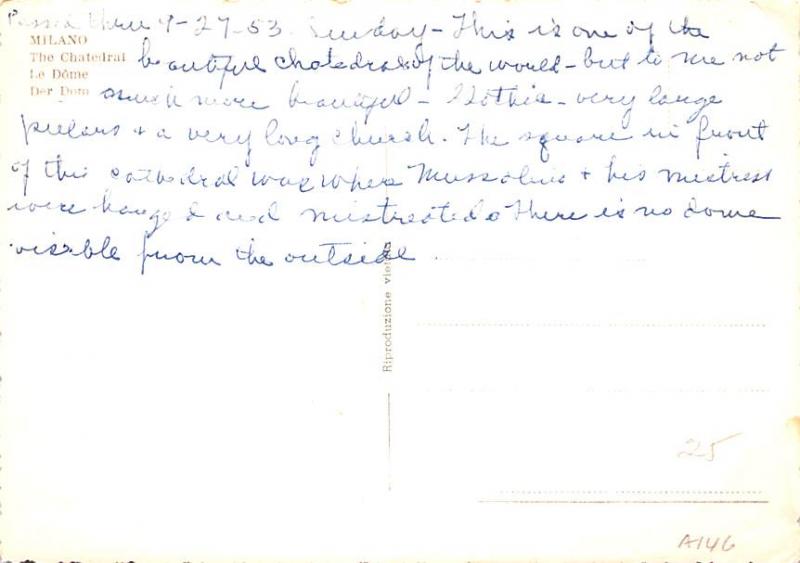 Passed thru 9-27-53. Sunday - This is one of the
MILANO
The Chatedral
Le Dôme
Der Dom
beautiful chatedrals of the world - but to me not
much more beautiful - Gothic - very large
pielars + a very long church. The square in front
of this cathedral was where Mussolini + his mistress
were hanged and mistreated. There is no dome
visible from the outside.
Riproduzione vietata
25
A146